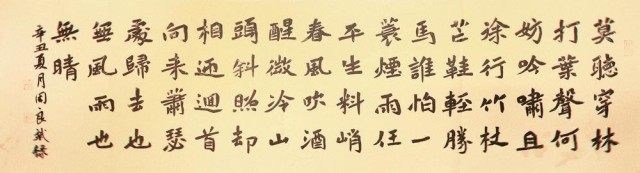 莫聽穿林
打葉聲何
妨吟嘯且
徐行竹杖
芒鞋輕勝
馬誰怕一
蓑煙雨任
平生料峭
春風吹酒
醒微冷山
頭斜照却
相迎迴首
向来蕭瑟
處歸去也
無風雨也
無晴
辛丑夏月周良斌錄